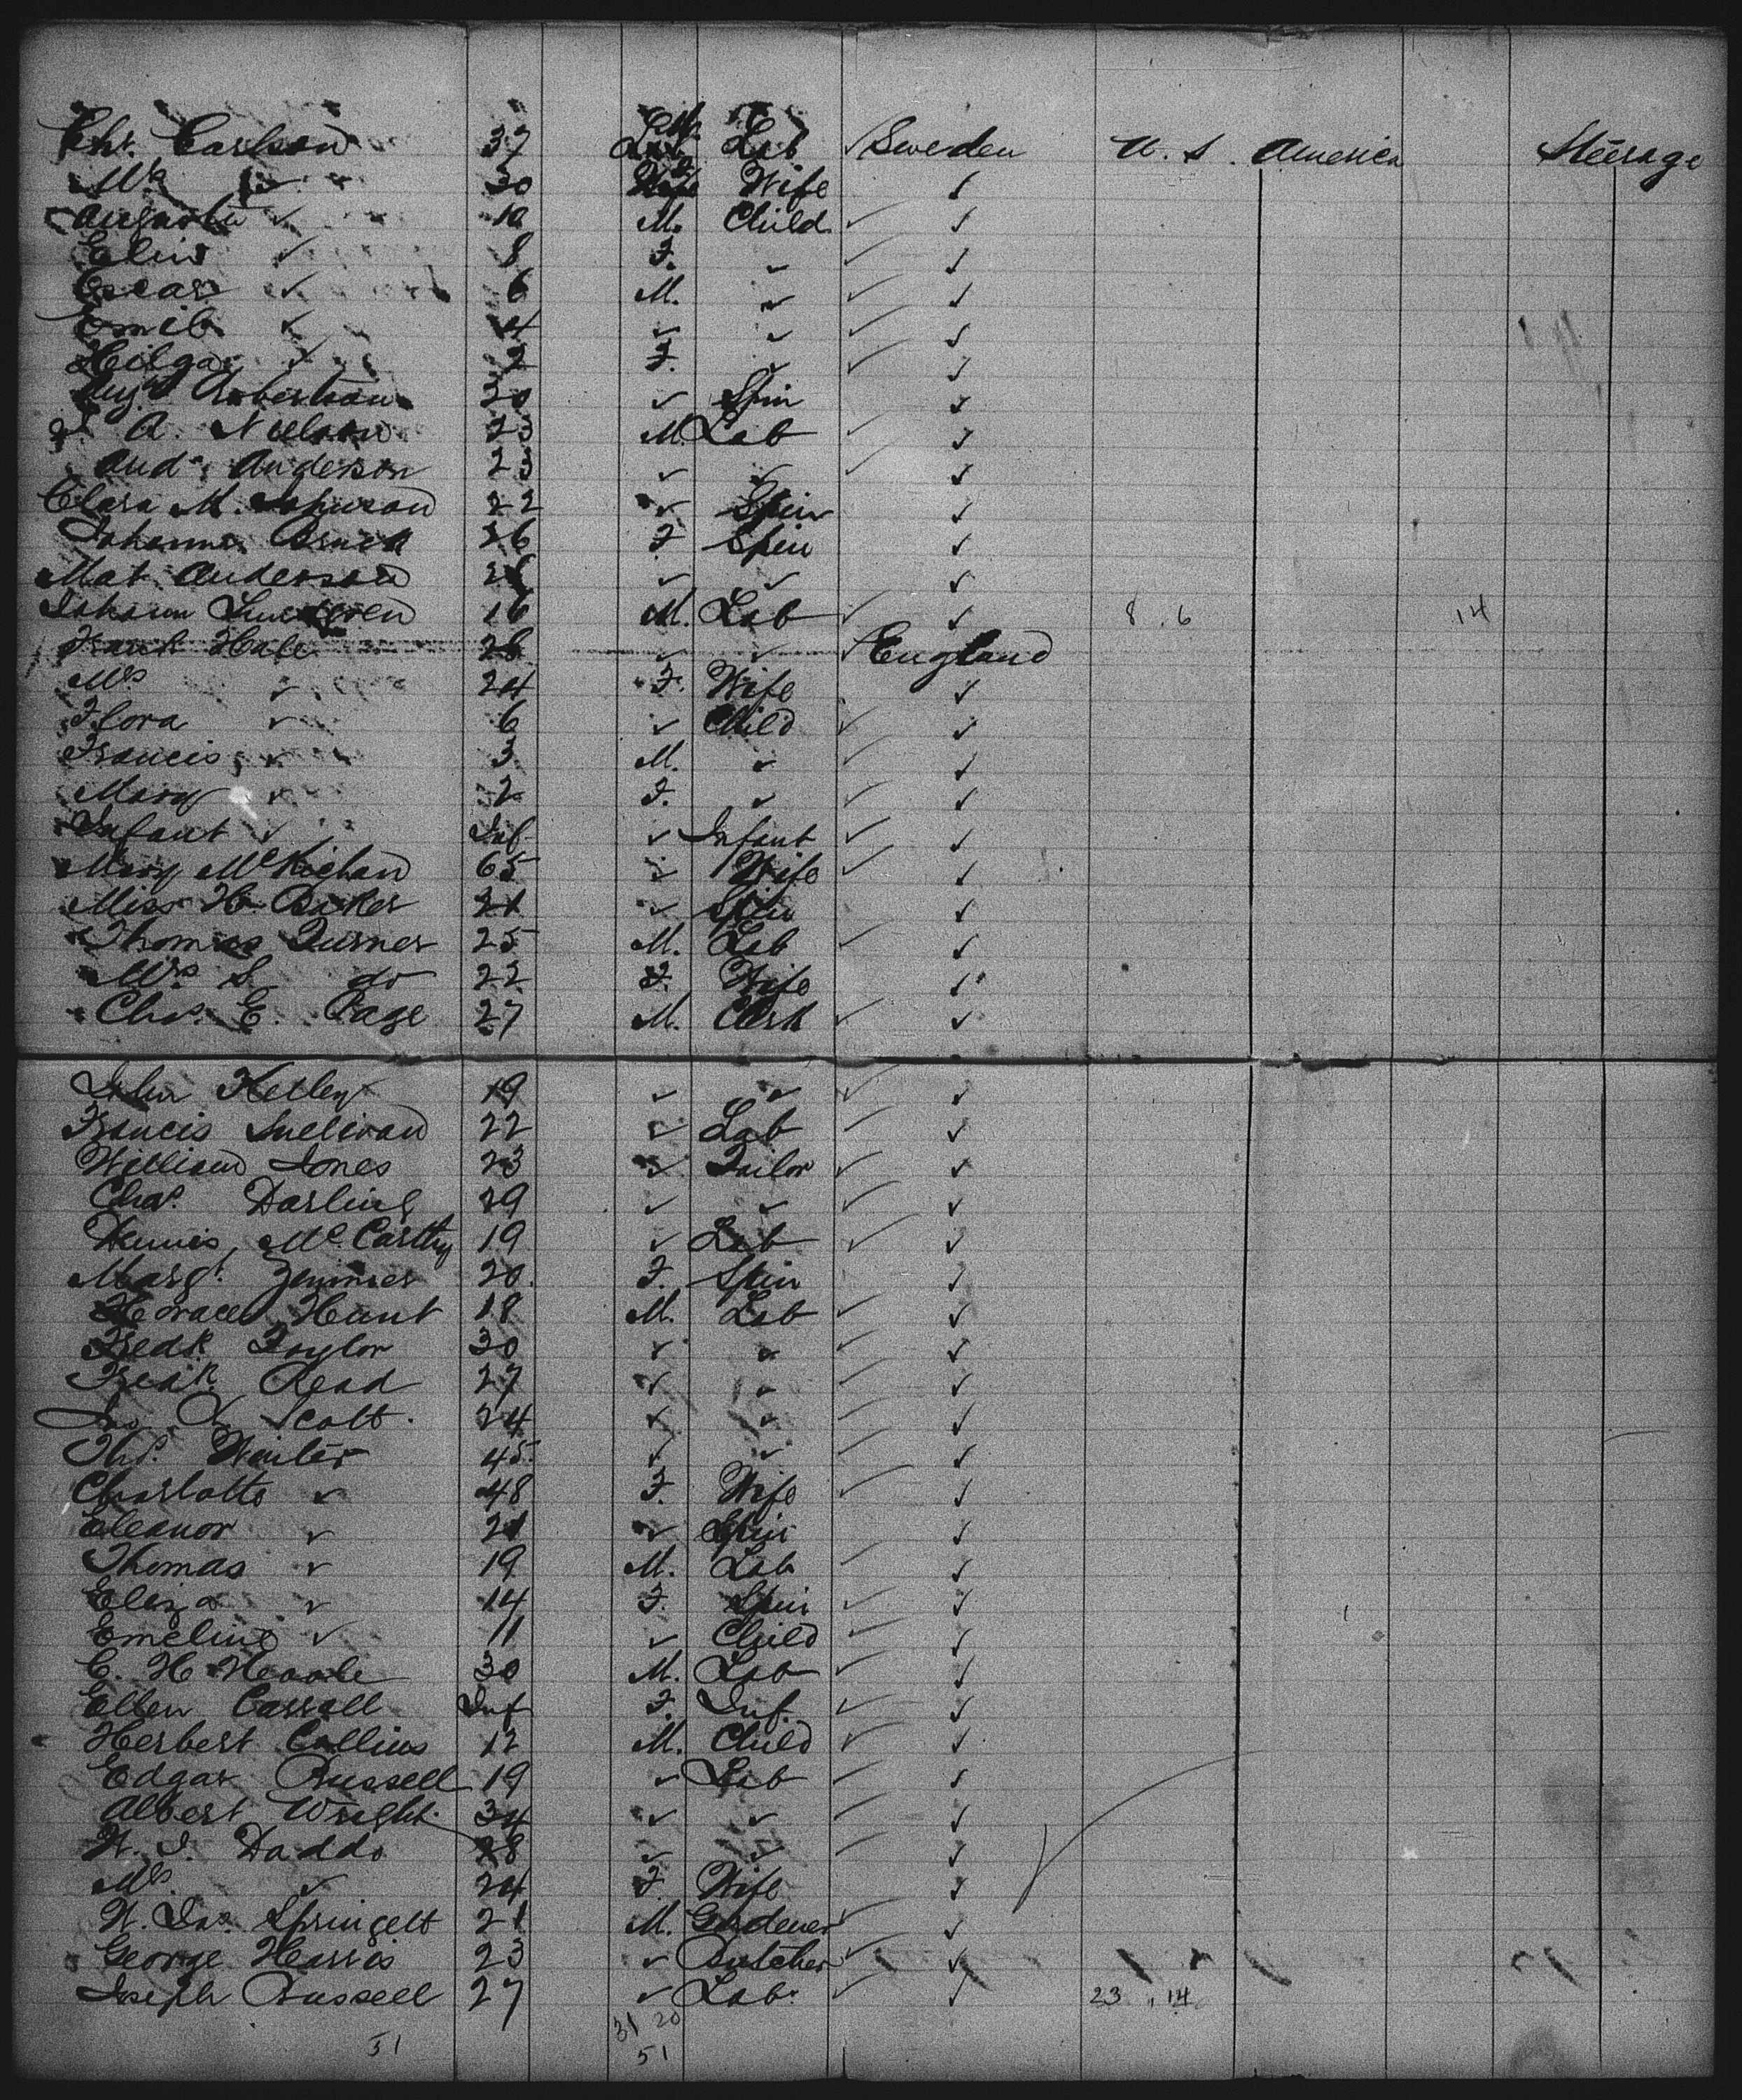 Chr. Carlson 37 Lab Lab ✓ Sweden U. S. America Steerage
Mrs ✓ 30 Wife Wife ✓
Augusta ✓ 10 M. Child ✓ ✓
Elin ✓ 8 F. ✓ ✓ ✓
Oscar ✓ 6 M. ✓ ✓ ✓
Emil ✓ 4 ✓ ✓ ✓ ✓
Hilga ✓ 2 F. ✓ ✓ ✓
Robertson 30 ✓ Spin ✓
A. Nielson 23 M. Lab ✓ ✓
And. Anderson 23 ✓ ✓ ✓ ✓
Clara M. Johnson 22 ✓ Spin ✓
Johanna 26 F Spin ✓
Mat. Anderson ✓ ✓ ✓
Johann Lundgren 16 M. Lab ✓ ✓ 8 . 6 14
Frank Hale 28 ✓ ✓ ✓ England
Mrs ✓ 24 F. Wife ✓
Flora ✓ 6 ✓ Child ✓ ✓
Francis ✓ 3 M. ✓ ✓ ✓
Mary ✓ 2 F. ✓ ✓ ✓
Infant ✓ Inf ✓ Infant ✓ ✓
Mary McKichan 65 ✓ Wife ✓ ✓
Miss H. Baker 21 ✓ Spin ✓
Thomas Turner 25 M. Lab ✓ ✓
Mrs S. do 22 F. Wife ✓
Chas. E. Page 27 M. Clerk ✓ ✓
John Kelley 19 ✓ ✓ ✓ ✓
Francis Sullivan 22 ✓ Lab ✓ ✓
William Jones 23 ✓ Tailor ✓ ✓
Chas. Darling 29 ✓ ✓ ✓ ✓
Dennis McCarthy 19 ✓ Lab ✓ ✓
Margt. 20. F. Spin ✓
Horace Hunt 18 M. Lab ✓ ✓
Fredk Taylor 30 ✓ ✓ ✓ ✓
Fredk Read 27 ✓ ✓ ✓ ✓
Scott. 24 ✓ ✓ ✓ ✓
Ths. Winter 45. ✓ ✓ ✓ ✓
Charlotte ✓ 48 F. Wife ✓ ✓
Eleanor ✓ 21 ✓ Spin ✓
Thomas ✓ 19 M. Lab ✓ ✓
Eliza ✓ 14 F. Spin ✓ ✓
Emeline ✓ 11 ✓ Child ✓ ✓
C. H. 30 M. Lab ✓ ✓
Ellen Carroll Inf F. Inf. ✓ ✓
Herbert Collins 12 M. Child ✓ ✓
Edgar Russell 19 ✓ Lab ✓ ✓
Albert Wright. 34 ✓ ✓ ✓ ✓
W. J. Daddo 28 ✓ ✓ ✓ ✓
Mrs. ✓ 24 F. Wife ✓
W. Jas. Springett 21 M. Gardener ✓ ✓
George Harris 23 ✓ Butcher ✓ ✓
Joseph Russell 27 ✓ Lab. ✓ ✓ 23 . 14
31 20
51 51